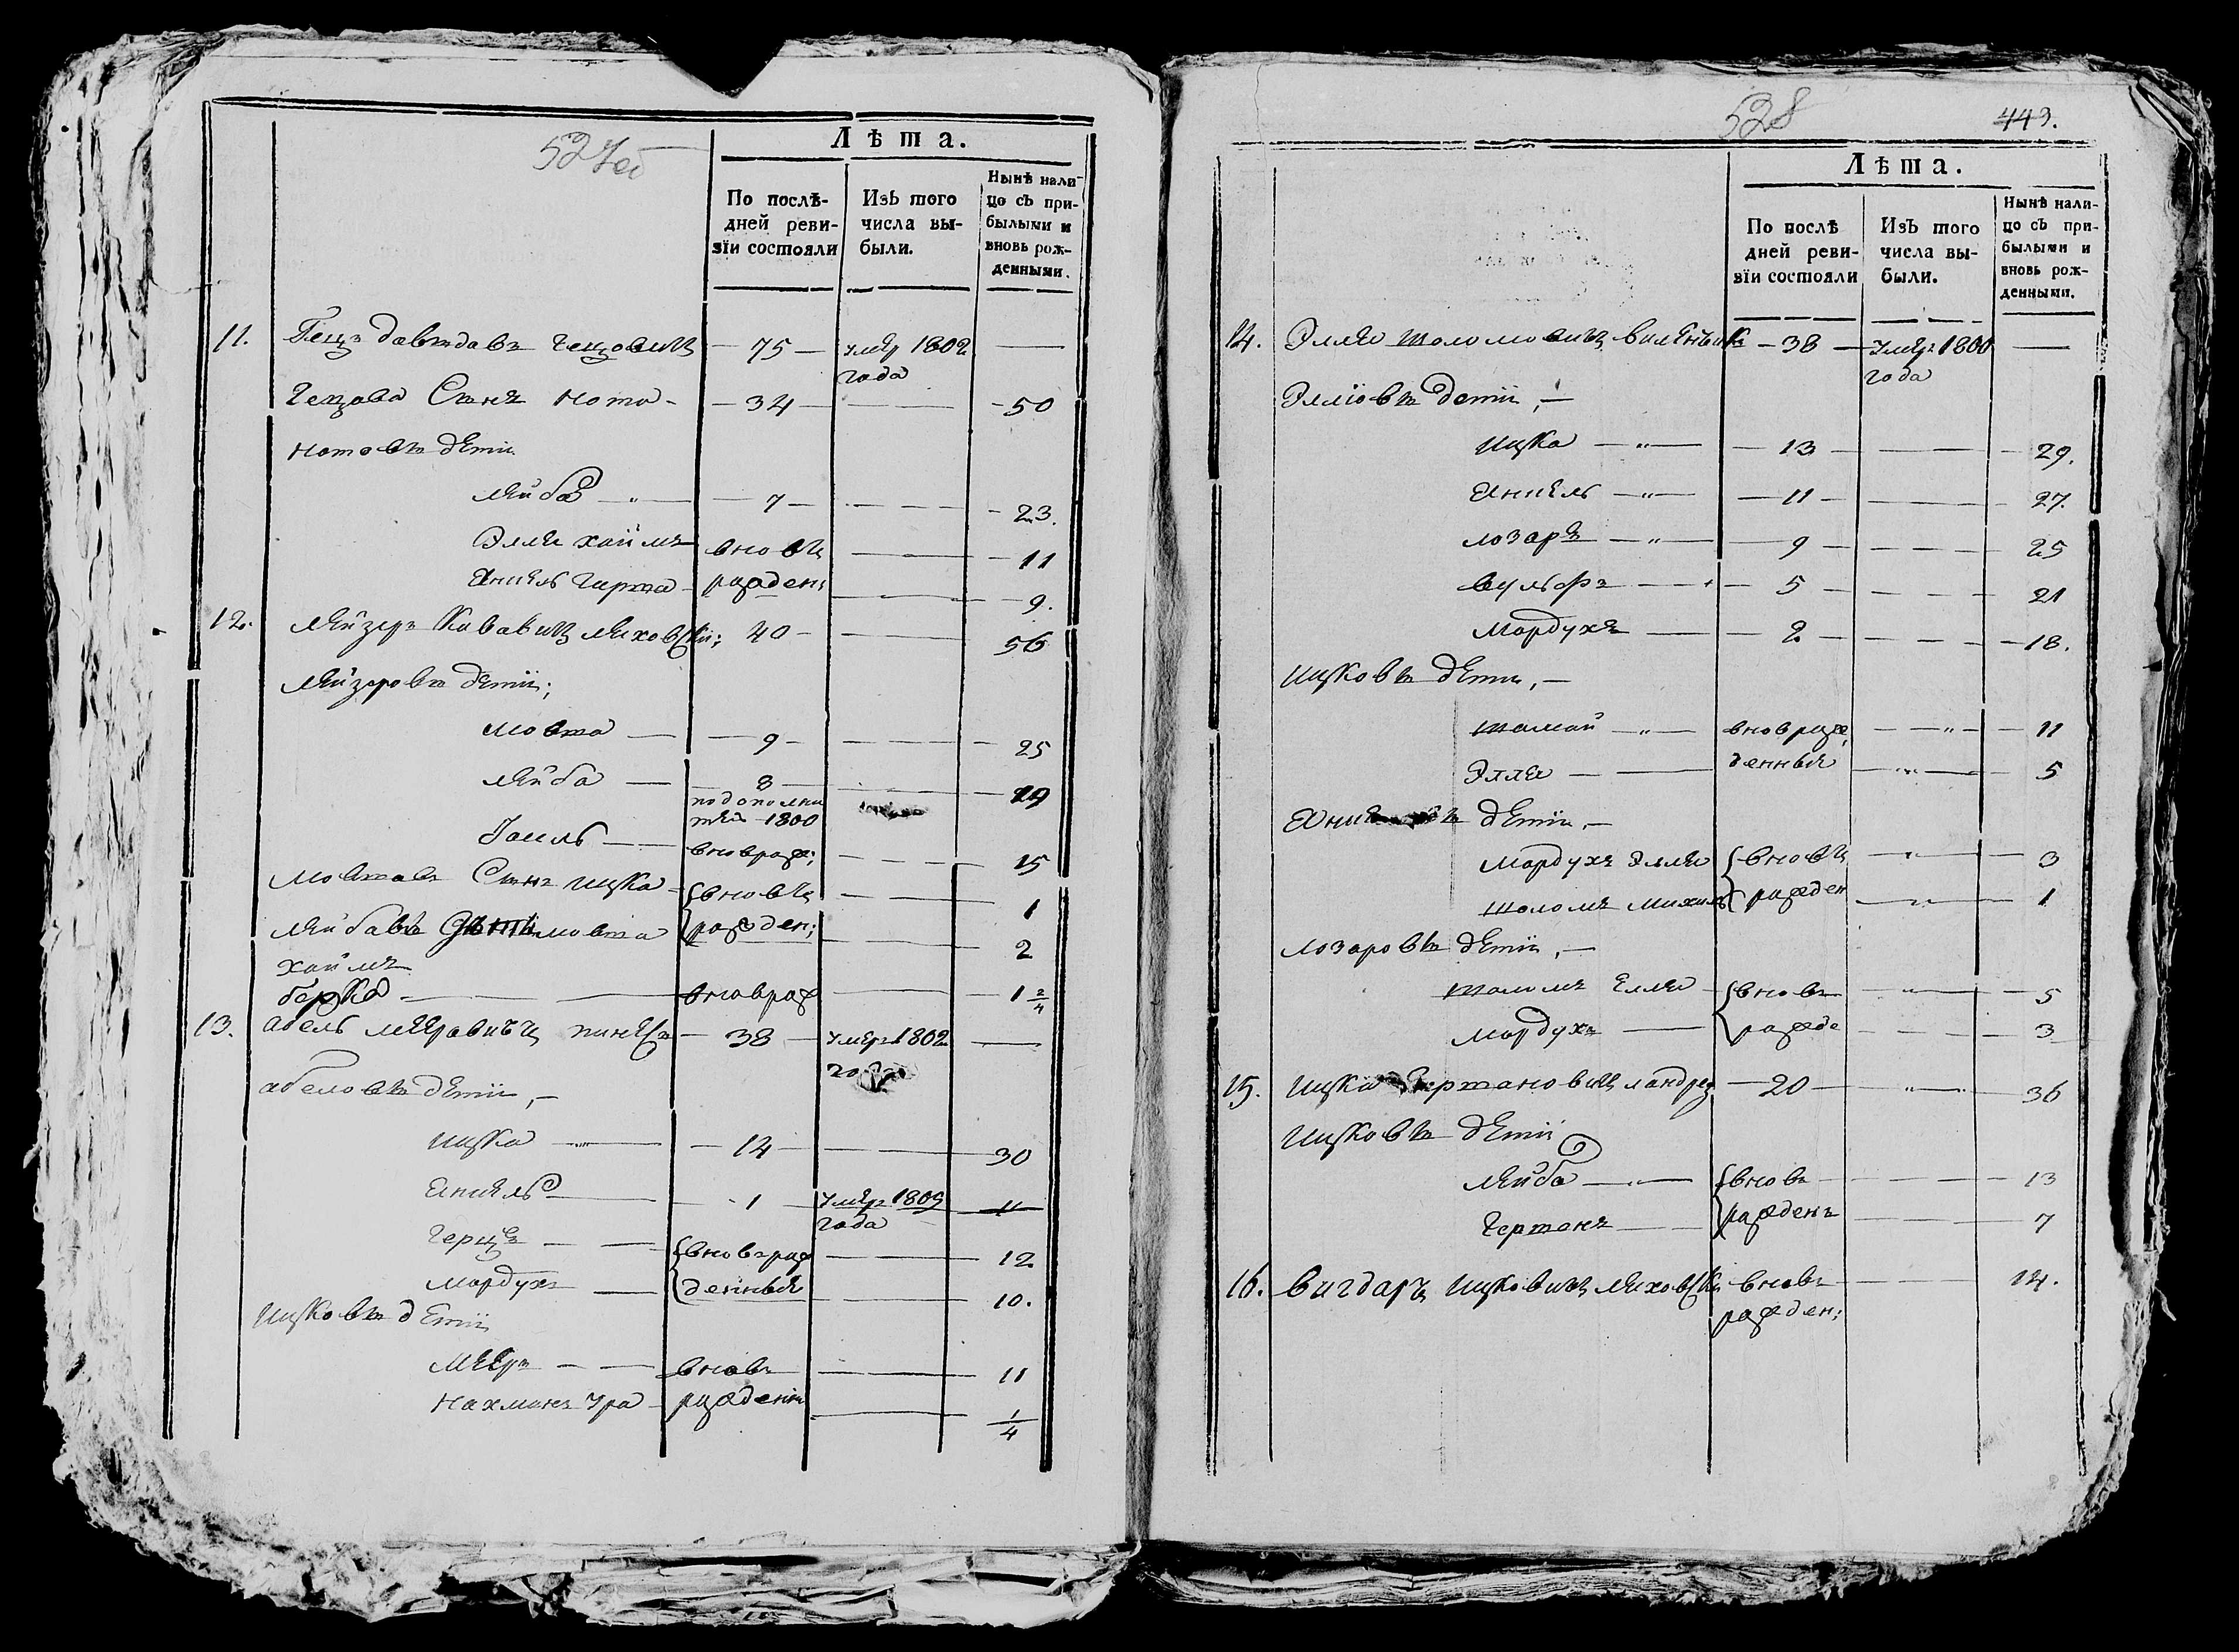 527об
Лѣта.
По послѣ-
дней реви-
зїи состояли
Изъ того
числа вы-
были.
Нынѣ нали-
цо съ при-
былыми и
вновь рож-
денными.
11. Гецъ Давыдавъ Гецовичъ — 75 — умеръ 1802 —
года
Гецова Сынъ Нота — 34 — — 50
Нотовы дети
Лейба — 7 — — 23.
Элля Хаймъ вновь — 11
рожден: — 9.
12. Лейзеръ Ляховски; 40 — — 56
Лейзеровы дети;
Мовша — 9 — — 25
Лейба — 8 — — 19
по дополни
1800
вноврож; — 15
Мовшавъ Сынъ Ицка {вновь — 1
Лейбавы дѣти Мовша {рожден; — 2
Хаймъ
Берка — вноврож — 1 2/4
13. Абель Мееравичъ — 38 — умеръ 1802 —
года
Абеловы дети, —
Ицка — 14 — — 30
— 1 — умеръ 1809 — 11
года
Герцъ — {вновърож — 12
Мордухъ — {денные — 10.
Ицковы дети
Мееръ — вновъ — 11
Нахманъ рожденны — 1/4
528
443.
Лѣта.
По послѣ
дней реви-
зїи состояли
Изъ того
числа вы-
были.
Нынѣ нали-
цо съ при-
былыми и
вновь рож-
денными.
14. Элля Шоломовичъ — 38 — умеръ 1800 —
года
Эллiовы дети, —
Ицка — „ — 13 — — 29.
— „ — 11 — — 27.
Лозаръ — „ — 9 — — 25
Вульфъ — 5 — — 21
Мордухъ — 2 — — 18.
Ицковы дети, —
— „ — вноврож — „ — 11
Элля — денные — „ — 5
дети, —
Мордухъ Элля {вновь — „ — 3
Шоломъ {рожден — „ — 1
Лозаровы дети, —
Шоломъ Елля {вновъ — „ — 5
Мордухъ — {рожде — 3
15. Ицка — 20 — „ — 36
Ицковы дети
Лейба — „ — {вновъ — 13
Гершонъ — {рожденъ — 7
16. Вигдаръ Ицковичъ Ляховски вновъ — 14.
рожден;